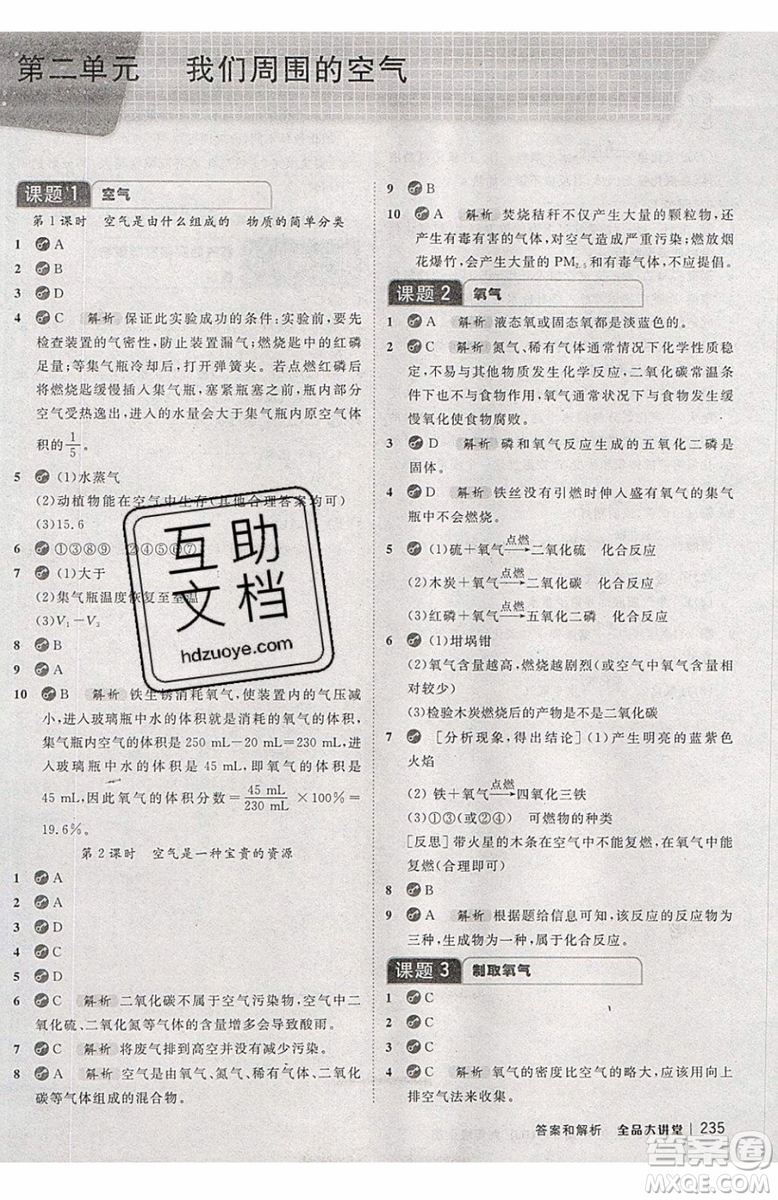 第二单元 我们周围的空气
课题1 空气
第1课时 空气是由什么组成的 物质的简单分类
1 A
2 B
3 D
4 C 解析 保证此实验成功的条件:实验前,要先
检查装置的气密性,防止装置漏气;燃烧匙中的红磷
足量;等集气瓶冷却后,打开弹簧夹。若点燃红磷后
将燃烧匙缓慢插入集气瓶,塞紧瓶塞之前,瓶内部分
空气受热逸出,进入的水量会大于集气瓶内原空气体
积的1/5。
5 (1)水蒸气
(2)动植物能在空气中生存(其他合理答案均可)
(3)15.6
6 ①③⑧⑨ ②④⑤⑥⑦
7 (1)大于
(2)集气瓶温度恢复至室温
(3)V₁-V₃
8 B
9 D
10 B 解析 铁生锈消耗氧气,使装置内的气压减
小,进入玻璃瓶中水的体积就是消耗的氧气的体积,
集气瓶内空气的体积是 250 mL-20 mL=230 mL,
进入玻璃瓶中水的体积是
45 mL,因此氧气的体积分数=45 mL/230 mL×100%=
19.6%。
第2课时 空气是一种宝贵的资源
1 A
2 A
3 D
4 D
5 A
6 C 解析 二氧化碳不属于空气污染物,空气中二
氧化硫、二氧化氮等气体的增加会导致酸雨。
7 C 解析 将废气排到高空并没有减少污染。
8 A 解析 空气是由氧气、氮气、稀有气体、二氧化
碳等气体组成的混合物。
9 B
10 A 解析 焚烧秸秆不仅产生大量的颗粒物,还
产生有毒有害的气体,对空气造成严重污染;燃放烟
花爆竹,会产生大量的 PM₂.₅和有毒气体,不应提倡。
课题2 氧气
1 A 解析 液态氧或固态氧都是淡蓝色的。
2 C 解析 氮气、稀有气体通常情况下化学性质稳
定,不与其他物质发生化学反应,二氧化碳常温条件
下也不与食物发生反应,氧气通常状况下与食物发生缓
慢氧化使食物腐败。
3 D 解析 磷和氧气反应生成的五氧化二磷是
固体。
4 D 解析 铁丝没有引燃时伸入盛有氧气的集气
瓶中不会燃烧。
5 (1)硫+氧气 点燃→ 二氧化硫 化合反应
(2)木炭+氧气 点燃→ 二氧化碳 化合反应
(3)红磷+氧气 点燃→ 五氧化二磷 化合反应
6 (1)坩埚钳
(2)氧气含量越高,燃烧越剧烈(或空气中氧气含量相
对较少)
(3)检验木炭燃烧后的产物是不是二氧化碳
7 [分析现象,得出结论] (1)产生明亮的蓝紫色
火焰
(2) 铁+氧气 点燃→ 四氧化三铁
(3)①③(或②④) 可燃物的种类
[反思]带火星的木条在空气中不能复燃,在氧气中能
复燃(合理即可)
8 B
9 A 解析 根据题给信息可知,该反应的反应物为
三种,生成物为一种,属于化合反应。
课题3 制取氧气
1 C
2 C
3 C
4 C
5 C 解析 氧气的密度比空气的略大,应用向上排
空气法来收集。
答案和解析 全品大讲堂 235
互助
文档
hdzuoye.com
答案圈
MXQE.COM